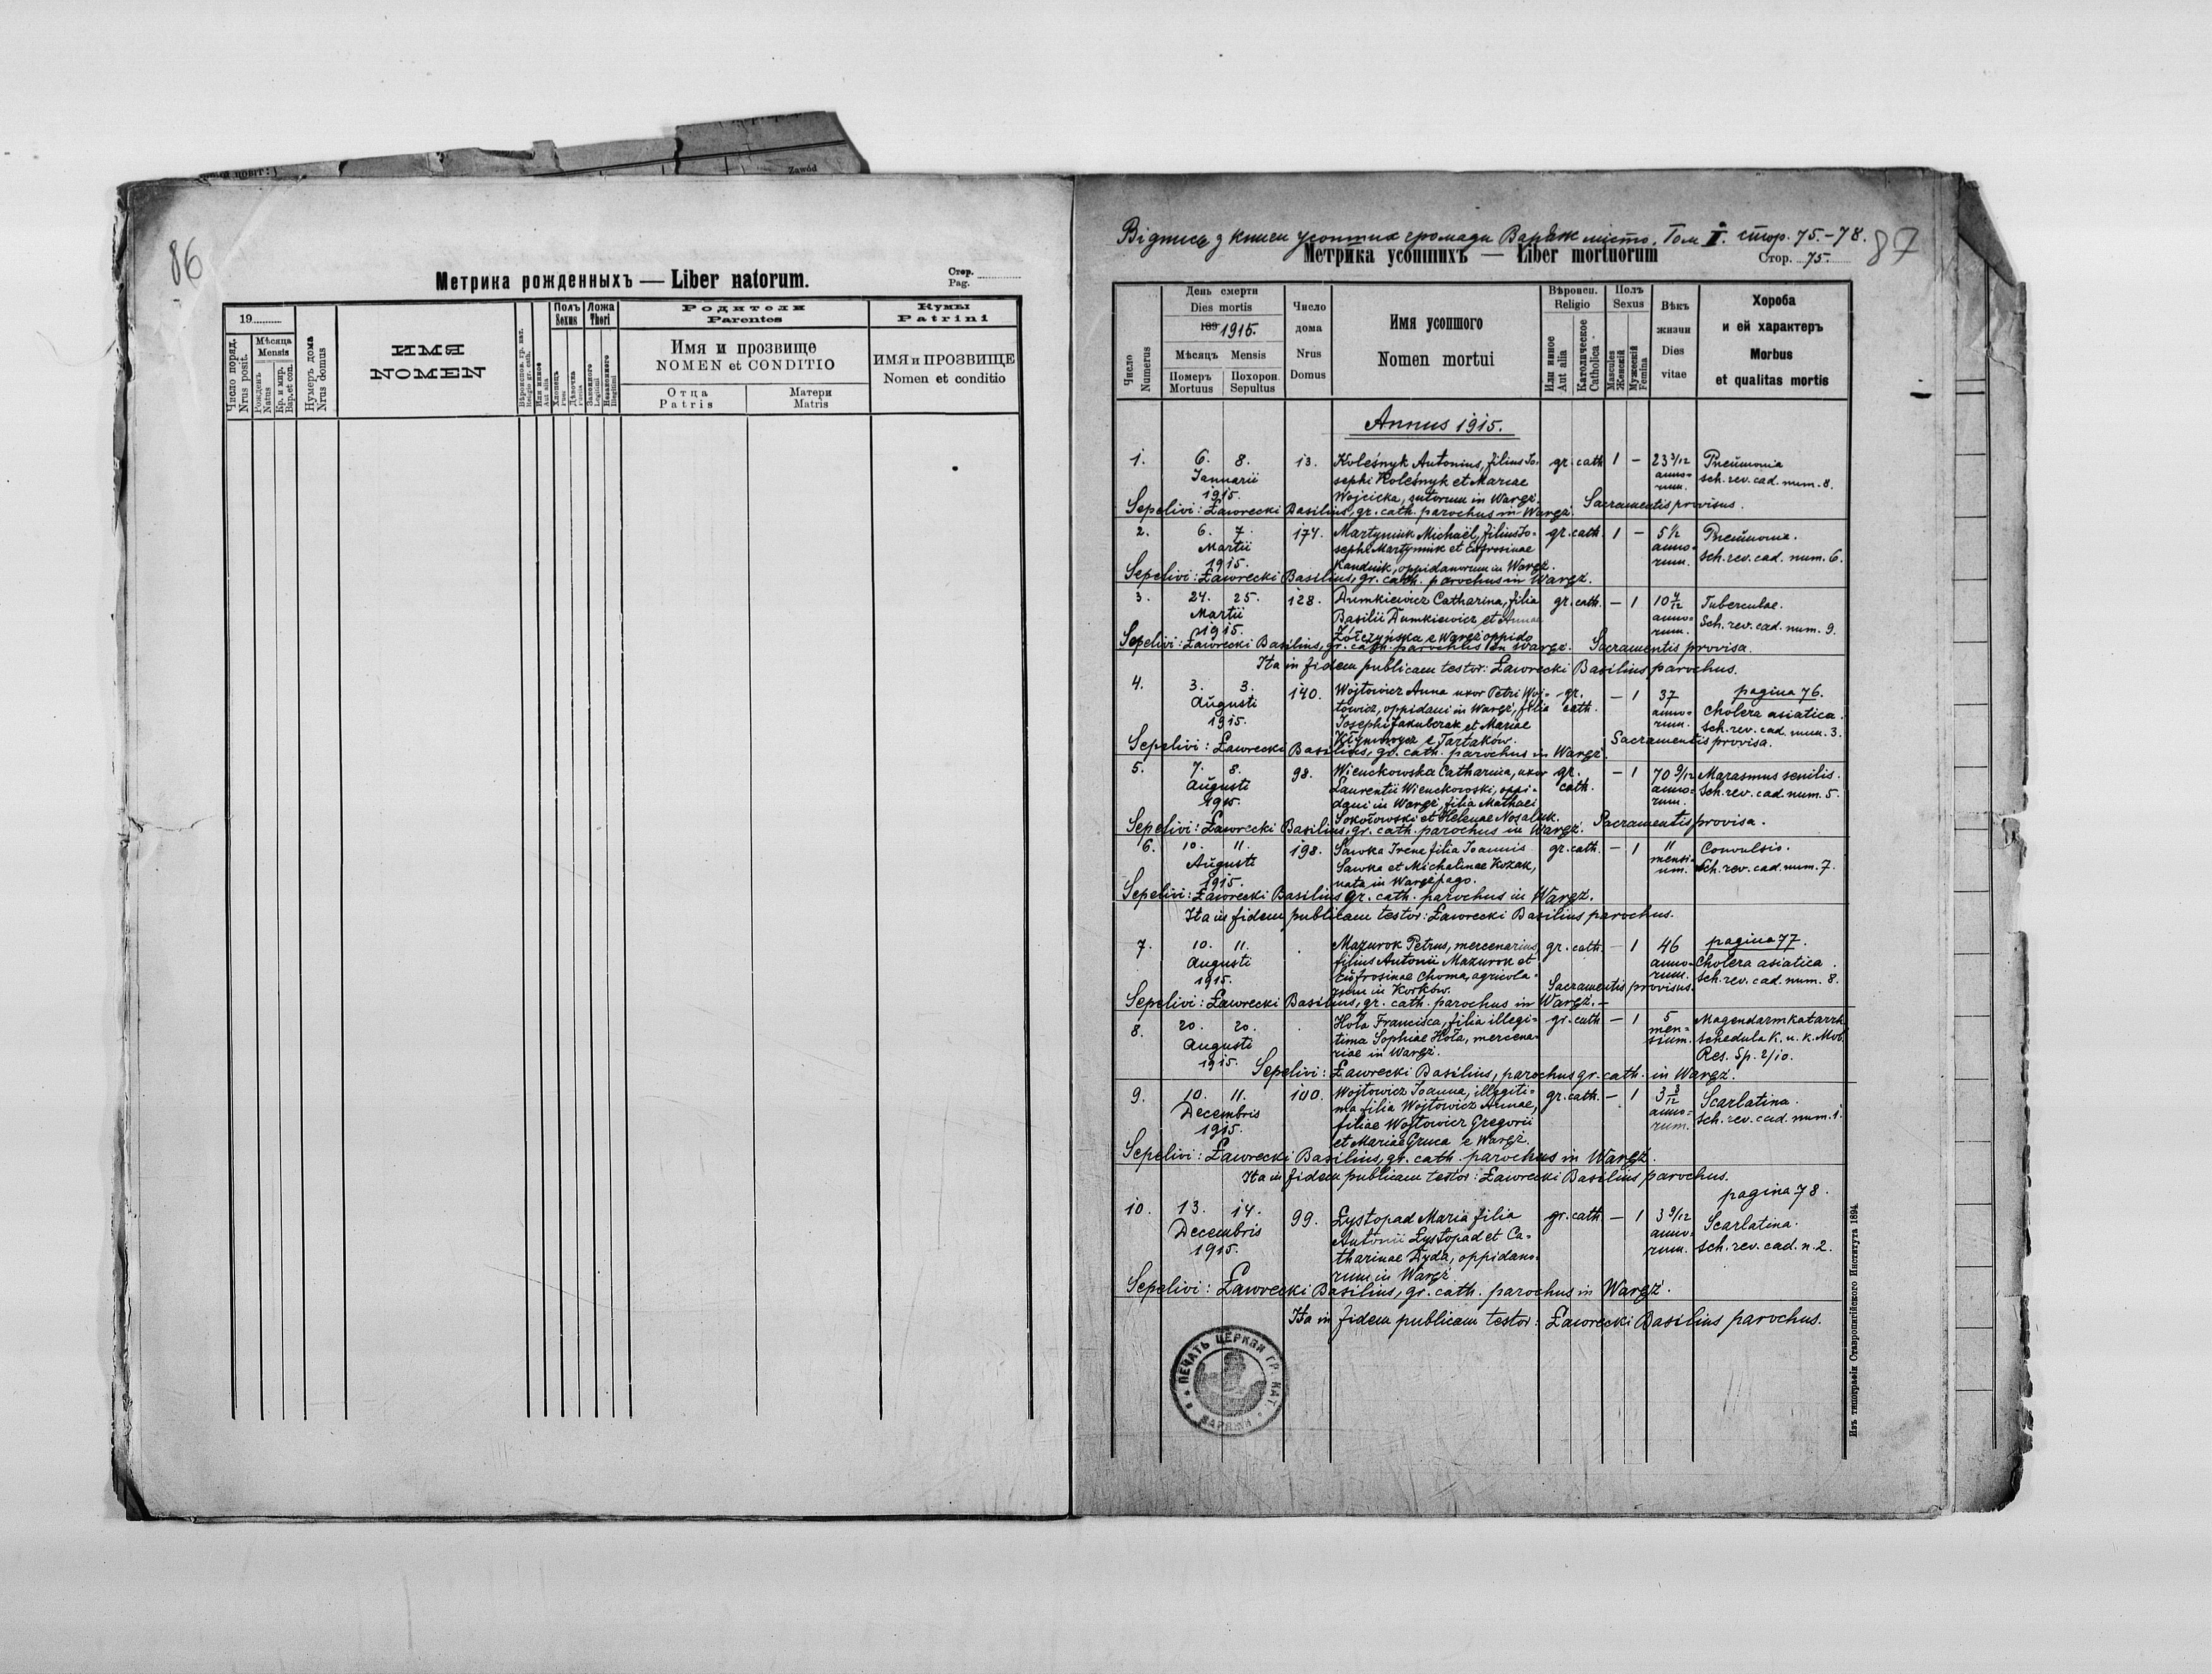 86
Метрика рожденныхъ — Liber natorum.
Стор.
Pag.
19
Число поряд.
Nrus posit.
Мѣсяца
Mensis
Рожденъ
Natus
Кр. и мир.
Bap. et con.
Нумеръ дома
Nrus domus
ИМЯ
NOMEN
Вѣроиспов. гр. кат.
Religio gr. cath.
Или инное
Aut alia
Полъ
Sexus
Хлопецъ
Puer
Дѣвочка
Puella
Ложа
Thori
Законного
Legitimi
Незаконного
Illegitimi
Родители
Parentes
Имя и прозвище
NOMEN et CONDITIO
Отца
Patris
Матери
Matris
Кумы
Patrini
ИМЯ и ПРОЗВИЩЕ
Nomen et conditio
Zawód
Відпись з книги усопших громади Варяж місто. Том I. стор. 75.-78.
87
Метрика усопшихъ — Liber mortuorum
Стор. 75.
Число
Numerus
День смерти
Dies mortis
189 1915.
Мѣсяцъ Mensis
Померъ
Mortuus
Похорон.
Sepultus
Число
дома
Nrus
Domus
Имя усопшого
Nomen mortui
Вѣроисп.
Religio
Или инное
Aut alia
Католическое
Catholica
Полъ
Sexus
Masculus
Женскій
Мужескій
Femina
Вѣкъ
жизни
Dies
vitae
Хороба
и ей характеръ
Morbus
et qualitas mortis
Annus 1915.
1. 6. 8. 13. Kolesnyk Antonius, filius Jo- gr. cath 1 – 23 2/12 Pneŭmonia
Januarii sephi Kolesnyk et Mariae anno- sch. rev. cad. num. 8.
1915. Wojcicka, sutorum in Wargż. rum.
Sepelivi: Ławrecki Basilius, gr. cath. parochus in Wargż. Sacramentis provisus.
2. 6. 7. 174. Martyniuk Michaël, filius Jo- gr. cath. 1 – 5 1/2 Pneŭmonia.
Martii sephi Martyniuk et Eufrosinae anno- sch. rev. cad. num. 6.
1915. Kandiuk, oppidanorum in Wargż. rum.
Sepelivi: Ławrecki Basilius, gr. cath. parochus in Wargż.
3. 24. 25. 128. Dumkiewicz Catharina, filia gr. cath. – 1 10 4/12 Tuberculae.
Martii Basilii Dumkiewicz et Annae anno- Sch. rev. cad. num. 9.
1915. Żółczyńska e Wargż oppido rum.
Sepelivi: Ławrecki Basilius, gr. cath. parochus in Wargż. Sacramentis provisa.
Ita in fidem publicam testor: Ławrecki Basilius parochus.
4. 3. 3. 140. Wojtowicz Anna uxor Petri Woj- gr. – 1 37 pagina 76.
Augusti towicz, oppidani in Wargż, filia cath. anno- Cholera asiatica.
1915. Josephi Jakubczak et Mariae rum. sch. rev. cad. num. 3.
e Tartaków. Sacramentis provisa.
Sepelivi: Ławrecki Basilius, gr. cath. parochus in Wargż.
5. 7. 8. 98. Wienckowska Catharina, uxor gr. – 1 70 9/12 Marasmus senilis.
Augusti Laurentii Wienckowski, oppi- cath. anno- Sch. rev. cad num. 5.
1915. dani in Wargż, filia Mathaei rum.
Sokołowski et Helenae Nosaluk. Sacramentis provisa.
Sepelivi: Ławrecki Basilius, gr. cath. parochus in Wargż.
6. 10. 11. 198. Sawka Irena filia Joannis gr. cath. – 1 11 Convulsio.
Augusti Sawka et Michalinae Kozak, mensi- Sch. rev. cad. num. 7.
1915. nata in Wargż pago. um.
Sepelivi: Ławrecki Basilius gr. cath. parochus in Wargż.
Ita in fidem publicam testor: Ławrecki Basilius parochus.
7. 10. 11. . Mazurok Petrus, mercenarius gr. cath. – 1 46 pagina 77.
Augusti filius Antonii Mazurok et anno- Cholera asiatica.
1915. Eŭfrosinae Choma, agricola- rum. sch. rev. cad. num. 8.
rum in Korków. Sacramentis provisus.
Sepelivi: Ławrecki Basilius, gr. cath. parochus in Wargż. –
8. 20. 20. . Hoła Francisca, filia illegi- gr. cath – 1 5 Magendarmkatarrh
Augusti tima Sophiae Hoła, mercena- men- schedula K. u. k. Mob.
1915. riae in Wargż. sium. Res. Sp. 2/10.
Sepelivi: Ławrecki Basilius, parochus gr. cath. in Wargż.
9. 10. 11. 100. Wojtowicz Joanna, illegiti- gr. cath. – 1 3 3/12 Scarlatina.
Decembris ma filia Wojtowicz Annae, anno- sch. rev. cad. num. 1.
1915. filiae Wojtowicz Gregorii rum.
et Mariae Gruca e Wargż.
Sepelivi: Ławrecki Basilius, gr. cath. parochus in Wargż.
Ita in fidem publicam testor: Ławrecki Basilius parochus.
pagina 78.
10. 13. 14. 99. Łystopad Maria filia gr. cath – 1 3 9/12 Scarlatina.
Decembris Antonii Łystopad et Ca- anno- sch. rev. cad. n. 2.
1915. tharinae Dyda, oppidano- rum.
rum in Wargż.
Sepelivi: Ławrecki Basilius, gr. cath. parochus in Wargż.
Ita in fidem publicam testor: Ławrecki Basilius parochus.
ПЕЧАТЬ ЦЕРКВИ ГР. КАТ.
Изъ типографіи Ставропигійского Института 1894.